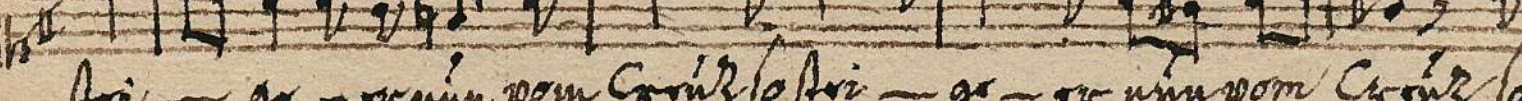 stei — ge — er nun vom Creutz so stei — ge — er nun vom Creutz so